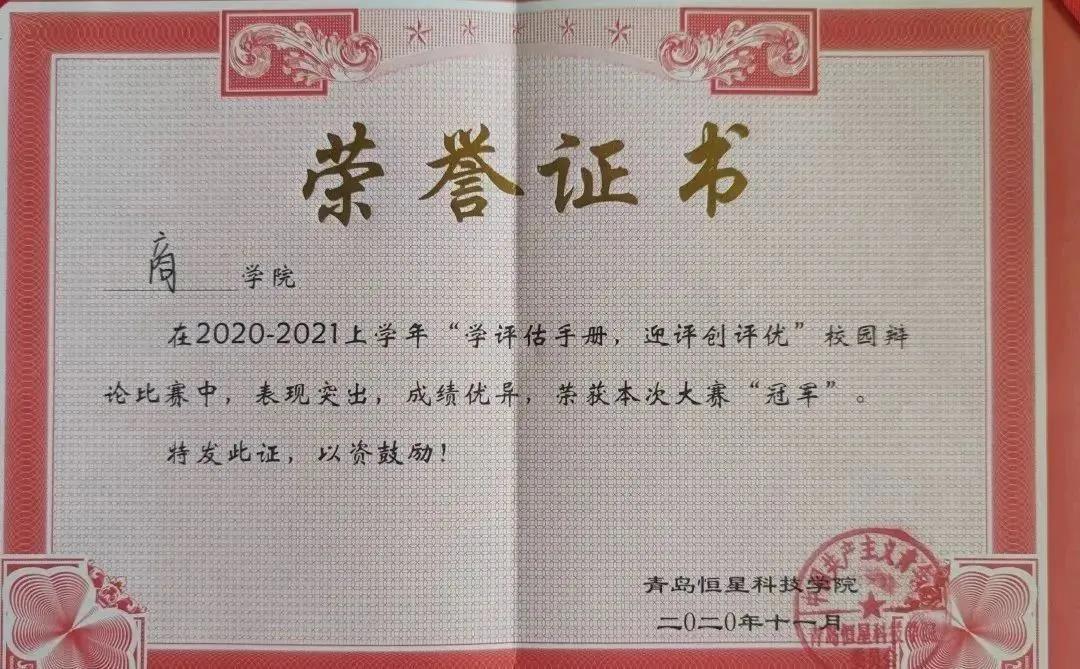 荣誉证书
商学院
在2020-2021上学年“学评估手册，迎评创评优”校园辩
论比赛中，表现突出，成绩优异，荣获本次大赛“冠军”。
特发此证，以资鼓励！
青岛恒星科技学院
二〇二〇年十一月